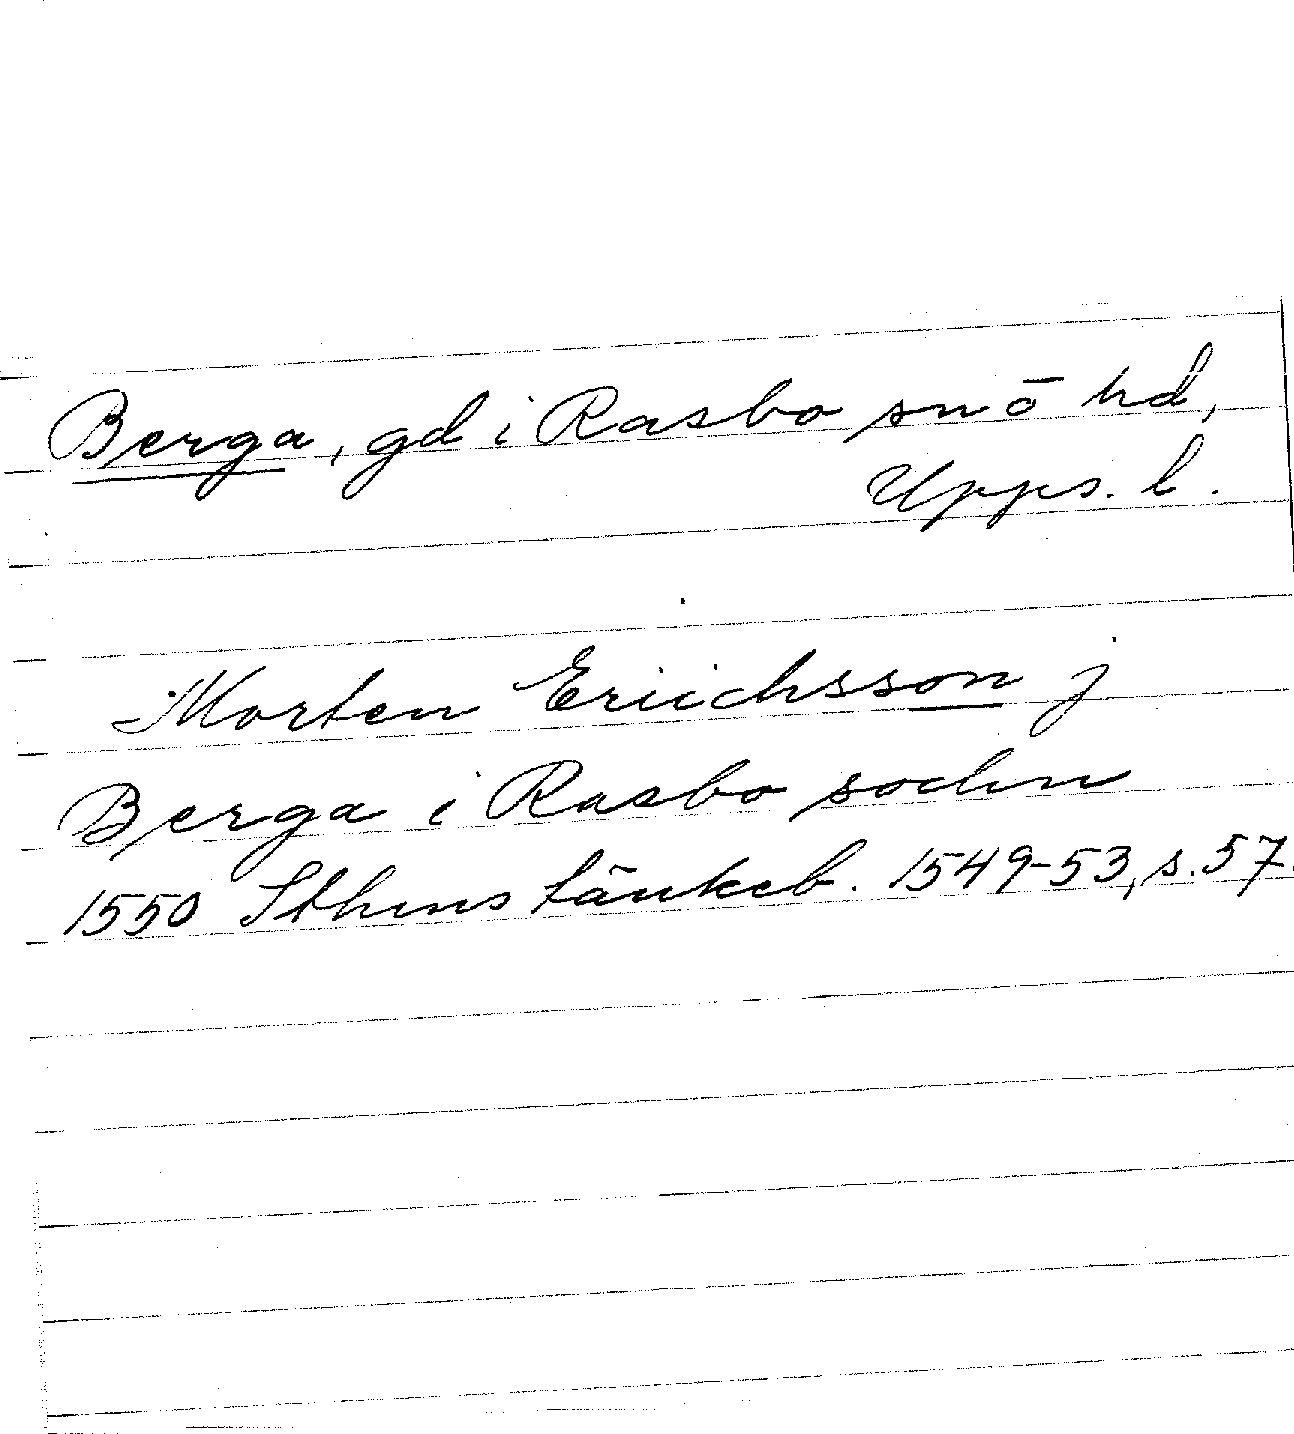 Berga, gd i Rasbo sn o hd,
Upps. l.
Morten Eriichsson j
Berga i Rasbo sochn
1550 Sthms tänkeb. 1549-53, s. 57.